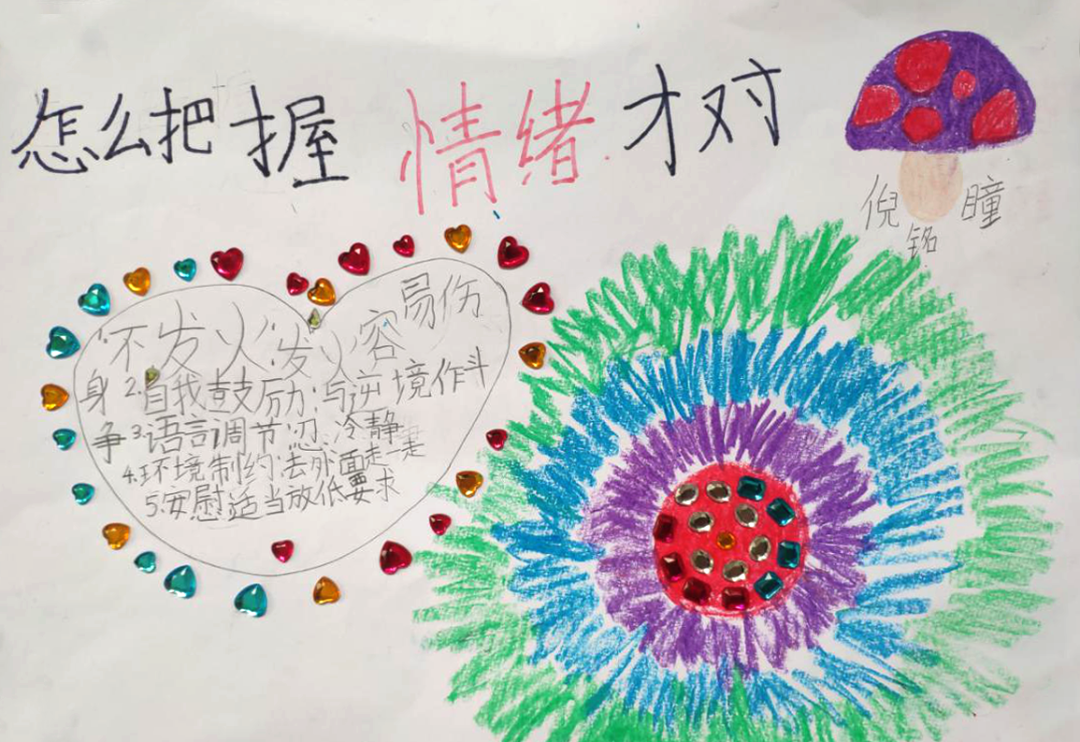 怎么把握情绪才对
倪铭瞳
不发火:发火容易伤
身2.自我鼓励:与逆境作斗
争3.语言调节:忍、冷静
4.环境制约:去外面走一走
5.安慰:适当放低要求